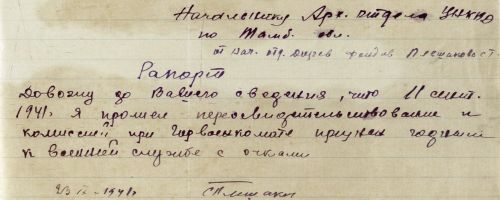 Начальнику Арх. отдела УНКВД
по Тамб. обл.
от нач. отд. фондов Плешакова С Т.
Рапорт
Довожу до Вашего сведения, что 11 сент.
1941 г. я прошел переосвидетельствование и
комиссией при Горвоенкомате признан годным
к военной службе с очками
23 IX–1941 г. СПлешаков